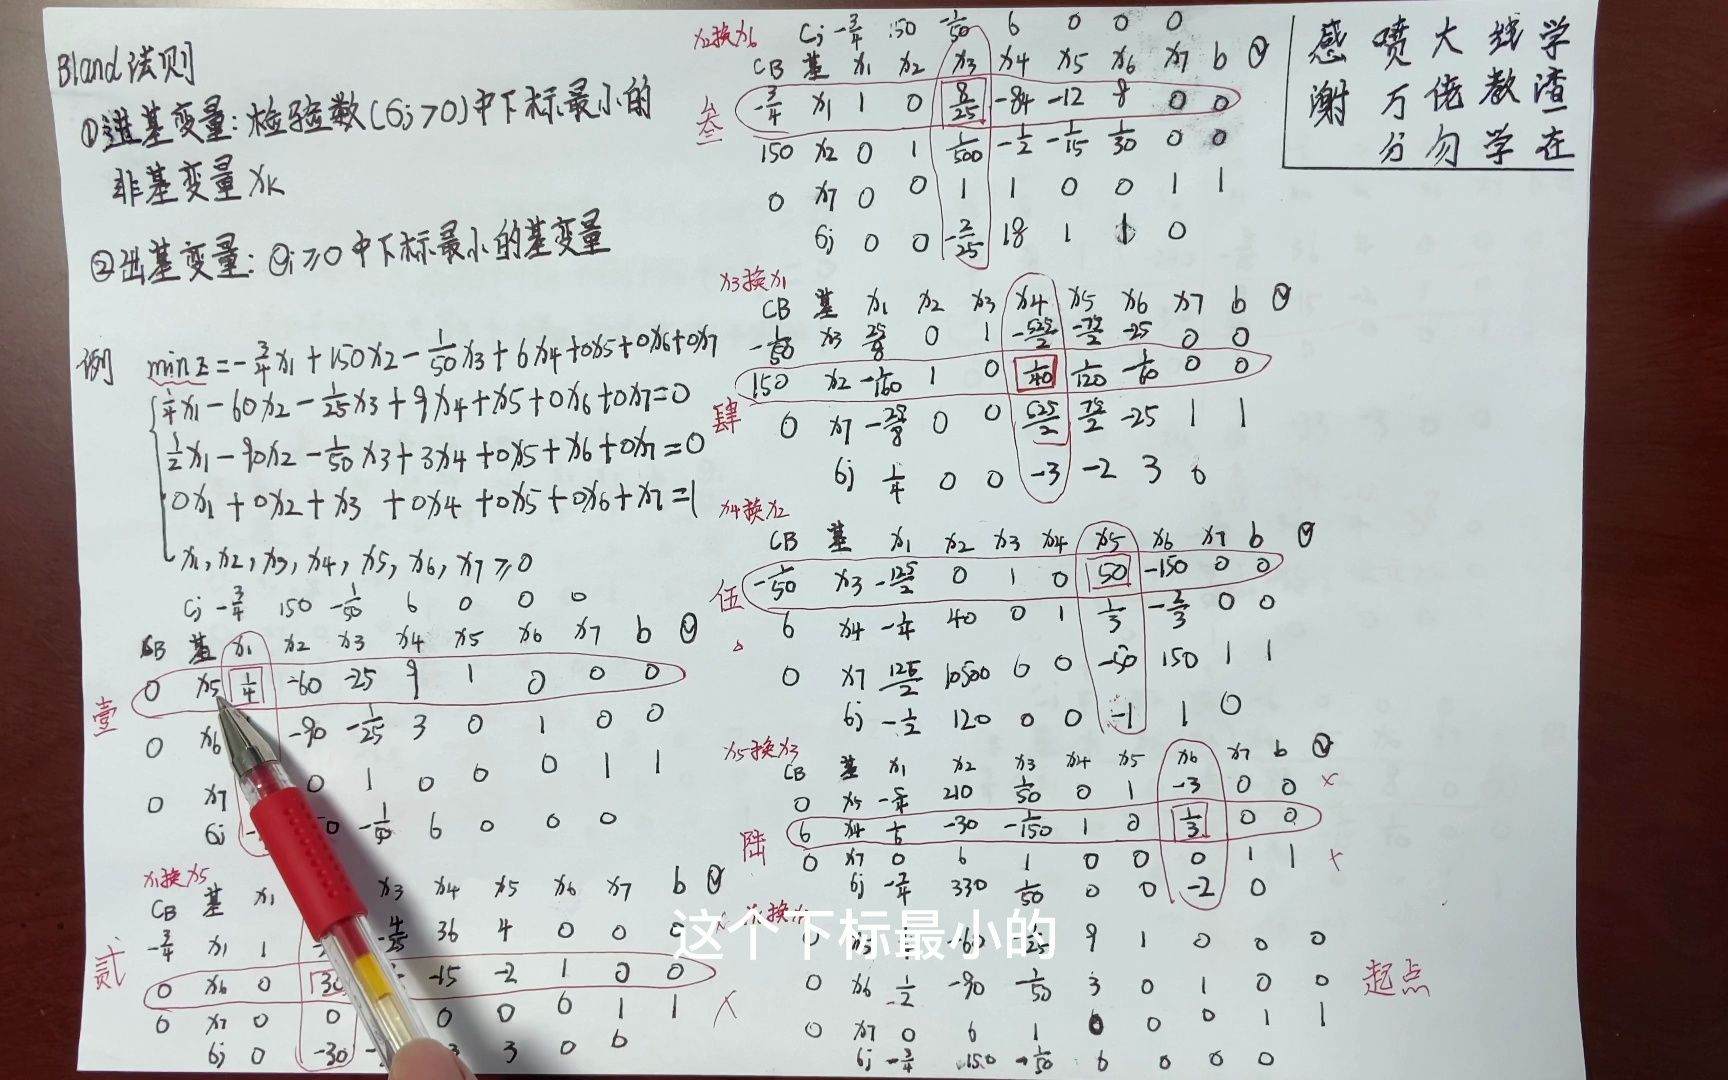 Bland法则
①进基变量:检验数(σj>0)中下标最小的
非基变量xK
②出基变量:θi≥0中下标最小的基变量
例 min z=-3/4x1+150x2-1/50x3+6x4+0x5+0x6+0x7
1/4x1-60x2-1/25x3+9x4+x5+0x6+0x7=0
1/2x1-90x2-1/50x3+3x4+0x5+x6+0x7=0
0x1+0x2+x3+0x4+0x5+0x6+x7=1
x1,x2,x3,x4,x5,x6,x7≥0
Cj -3/4 150 -1/50 6 0 0 0
CB 基 x1 x2 x3 x4 x5 x6 x7 b θ
0 x5 1/4 -60 -25 9 1 0 0 0
壹
0 x6 -90 -1/25 3 0 1 0 0
0 x7 0 1 0 0 0 1 1
σj 6 0 0 0
x1换x5
CB 基 x1 x3 x4 x5 x6 x7 b θ
-3/4 x1 1 -4/25 36 4 0 0 0
贰
0 x6 0 30 -15 -2 1 0 0
0 x7 0 0 0 0 0 1 1
σj 0 -30 3 0 0
x2换x6
Cj -3/4 150 -1/50 6 0 0 0
CB 基 x1 x2 x3 x4 x5 x6 x7 b θ
-3/4 x1 1 0 8/25 -84 -12 8 0 0
叁
150 x2 0 1 1/500 -1/2 -1/15 1/30 0 0
0 x7 0 0 1 1 0 0 1 1
σj 0 0 -2/25 18 1 1 0
x3换x1
CB 基 x1 x2 x3 x4 x5 x6 x7 b θ
-1/50 x3 25/8 0 1 -525/2 -75/2 -25 0 0
150 x2 -1/160 1 0 1/40 1/120 -1/60 0 0
肆
0 x7 -25/8 0 0 525/2 75/2 -25 1 1
σj 1/4 0 0 -3 -2 3 0
x4换x2
CB 基 x1 x2 x3 x4 x5 x6 x7 b θ
-1/50 x3 -125/2 0 1 0 50 -150 0 0
伍
6 x4 -1/4 40 0 1 1/3 -2/3 0 0
0 x7 125/2 10500 0 0 -50 150 1 1
σj -1/2 120 0 0 -1 1 0
x5换x3
CB 基 x1 x2 x3 x4 x5 x6 x7 b θ
0 x5 -5/4 210 1/50 0 1 -3 0 0 ×
6 x4 1/6 -30 -1/150 1 0 1/3 0 0
陆
0 x7 0 6 1 0 0 0 1 1 ×
σj -7/4 330 1/50 0 0 -2 0
-60 -1/25 9 1 0 0 0
0 x6 1/2 -90 -1/50 3 0 1 0 0
起点
0 x7 0 6 1 0 0 0 1 1
σj -3/4 150 -1/50 6 0 0 0
学渣在
线教学
大佬勿
喷万分
感谢
这个下标最小的